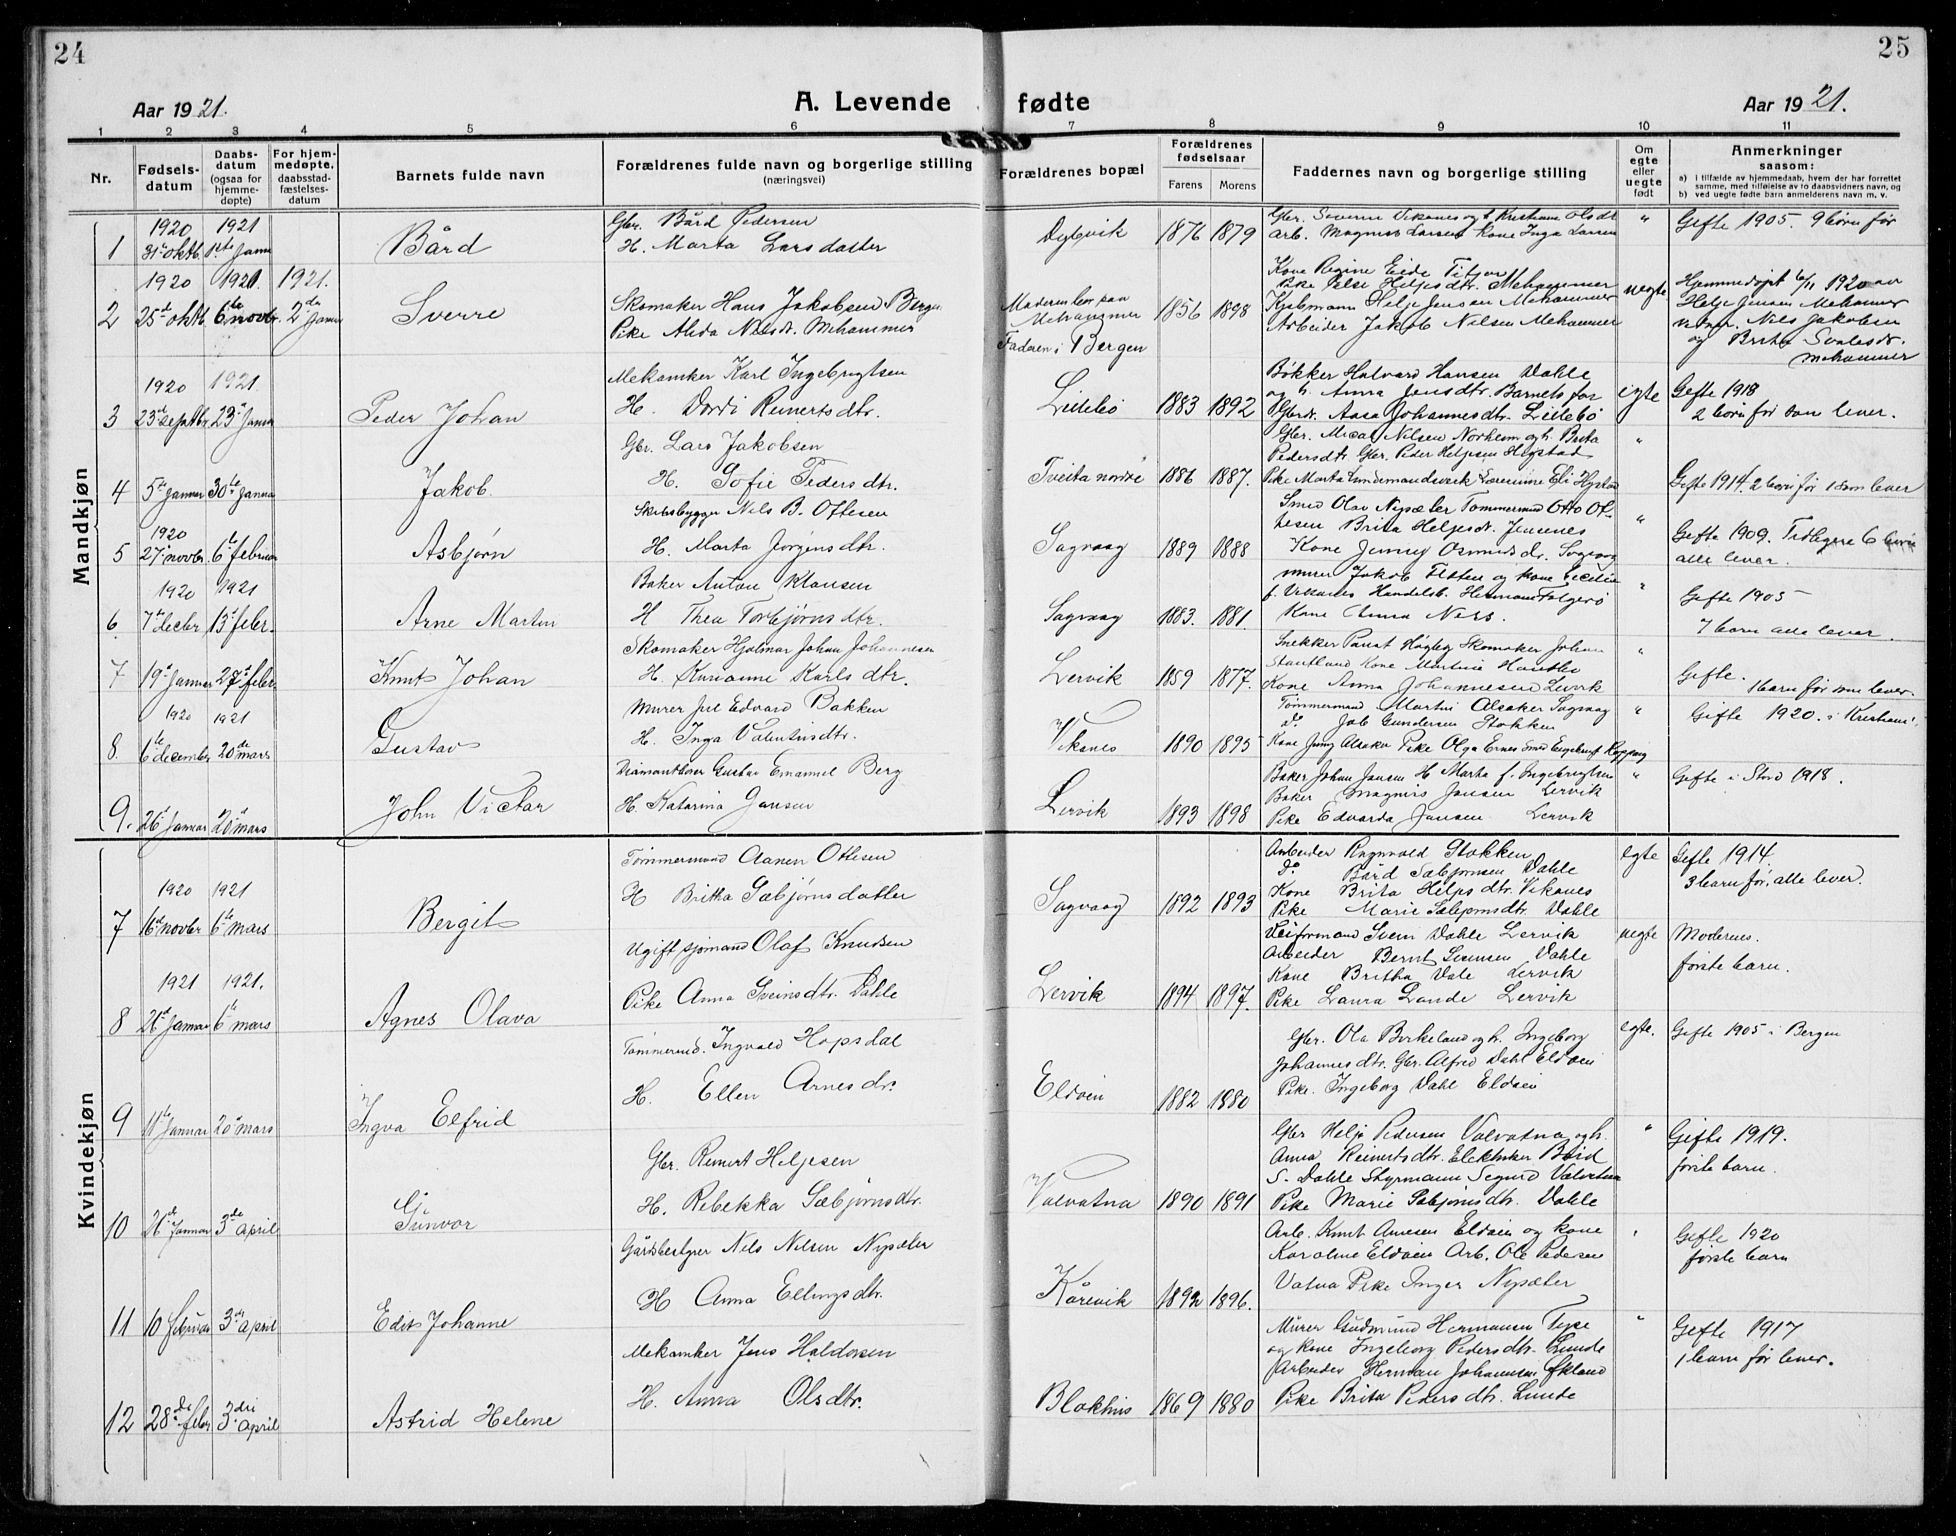 24
25
Aar 1921.
A. Levende fødte
Aar 1921.
1 2 3 4 5 6 7 8 9 10 11
Nr.
Fødsels-
datum
Daabs-
datum
(ogsaa for
hjemme-
døpte)
For hjem-
medøpte,
daabsstad-
fæstelses-
datum
Barnets fulde navn
Forældrenes fulde navn og borgerlige stilling
(næringsvei)
Forældrenes bopæl
Forældrenes
fødselsaar
Farens Morens
Faddernes navn og borgerlige stilling
Om
egte
eller
uegte
født
Anmerkninger
saasom:
a) I tilfælde av hjemmedaab, hvem der har forrettet
samme, med tilføielse av to daabsvidners navn, og
b) ved uegte fødte barn anmelderens navn m. v.
Mandkjøn
1920 1921
1 31te oktb. 1ste Janu Bård
Gbr. Bård Pedersen
H. Marta Larsdatter
Dybvik 1876 1879
Arb. Magnus Larsen kone Inga Larsen
"
Gifte 1905. 9 børn før
1920 1920 1921.
2 25de oktb. 6te novbr. 2den Januar Sverre
Skomaker Hans Jakobsen Bergen
Pike Alida Nilsdt. Mehammer
Moderens hjem paa
Mehammer
Faderen i Bergen
1856 1898
Kone Regine Eide Titjar
Pike Helje Heljesdtr. Mehammer
Kjøbmann Helje Jensen Mehammer
Arbeider Jakob Nilsen Mehammer
uegte
Hjemmedøpt 6/11 1920 av
Helje Jensen Mehammer
Nils Jakobsen
og Brita
Mehammer
1920 1921
3 23de septbr. 23de Januar Peder Johan
Mekaniker Karl Ingebrigtsen
H. Dordi Reinertsdtr.
Lillebø 1883 1892
Bøkker Halvard Hansen Dahle
og h. Anna Jensdtr. Barnets far
Aasa Johannesdtr. Lillebö
egte
Gefte 1918
2 børn før som lever.
4 5te Januar 30te Januar Jakob.
Gbr. Lars Jakobsen
H. Sofie Pedersdtr.
Tveita nordre 1886 1887.
Gbr. Nilsen Norheim og h. Brita
Pedersdtr Gbr. Peder Heljesen Hystad
"
Gefte 1914. 2 børn før 1 som lever
1920
5 27de novbr. 6te februar Asbjørn
Skibsbygger Nils B. Ottesen
H. Marta Jørgensdtr.
Sagvaag 1889 1888
Smed Olav Nysæter Tømmermand Otto Ot-
tesen Brita Heljesdt. Jensnes
Kone Jenny Osmundsdr. Sagvaag
"
Gefte 1909. Tidligere 6 børn
alle lever.
1920 1921
6. 7de decbr 13de febr. Arne Martin
Baker Anton Klausen
H Thea Torbjørnsdtr.
Sagvaag 1883. 1881.
Murer Jakob Fløten og kone Cecilie
f. Vikanes Handelsb. Herman Valgerö
Kone Anna Næss.
"
Gefte 1905
7 barn alle lever.
7 19de Januar 27de febr. Knut Johan
Skomaker Hjalmar Johan Johannesen
H. Karianne Karlsdtr.
Lervik 1859 1877.
Snekker Skomaker Johan
Kone Anna Johannesen Lervik
"
Gefte.
1 barn før som lever.
1920 1921
8. 6te december 20de mars Gustav
Murer Edvard Bakken
H. Inga Valentinsdtr.
Vikanes 1890 1895
Tømmermand Martin Alsaker Sagvaag
do. Jab Gundersen Stokken
Kone Jenny Alsaker Pike Olga
"
Gifte 1920. i Kristiania
9. 26de Januar 20de mars John Victor
Gustav Emanuel Berg
H. Katarina Jansen
Lervik 1893 1898
Baker Johan Jansen H Marta f. Ingebrigtsen
Baker Magnus Jansen Lervik
Pike Edvarda Jansen Lervik
"
Gefte i Stord 1918.
Kvindekjøn
1920 1921
7 16de novbr 6te mars Bergit
Tømmermand Aanen Ottesen
H Britha Sæbjørnsdatter
Sagvaag 1892 1893
Arbeider Ragnvald Stokken
Do. Bård Sæbjørnsen Dahle
Kone Brita Heljesdtr. Vikanes
Pike Marie Sæbjørnsdtr. Dahle
egte
Gefte 1914.
3 barn før, alle lever.
1921 1921.
8 26de Januar 6te mars Agnes Olava
Ugift sjømand Olaf Knudsen
Pike Anna Sveinsdtr. Dahle
Lervik 1894 1897.
Veiformand Svein Dahle Lervik
Arbeider Bernt Dahle
Kone Britha Dale Lervik
Pike Laura Lande Lervik
uegte
Moderens
første barn.
9 11te Januar 20de mars Ingva Elfrid
Tømmermd. Ingvald Hopsdal
H. Ellen Arnesdr.
Eldøen 1882 1880
Gbr. Ola Birkeland og h. Ingeborg
Johannesdtr. Gbr. Alfred Dahl Eldøen
Pike Ingeborg Dahl Eldøen
egte.
Gefte 1905 i Bergen
10 26de Januar 3de april Gunvor
Gbr. Reinert Heljesen
H. Rebekka Sæbjørnsdtr.
Valvatna 1890 1891
Gbr Helje Pedersen Valvatna og h.
Anna Reinertsdtr. Elektriker Bård
S. Dahle Styrmann Sigurd Valvatna
Pike Marie Sæbjørnsdtr. Dahle
"
Gifte 1919.
første barn.
11 10 februar 3de april Edit Johanne
Gårdsbestyrer Nils Nilsen Nysæter
H Anna Ellingsdtr.
Kårevik 1892 1896.
Arb. Knut Arnesen Eldøen og kone
Karoline Eldøen Arb. Ole Pedersen
Vatna Pike Inger Nysæter
"
Gefte 1920
første barn
12 28de febr 3die april Astrid Helene
Mekaniker Jens Haldorsen
H. Anna Olsdtr.
Blokhus 1869 1880
Murer Gudmund Hermansen Tyse
og kone Ingeborg Pedersdtr. Lunde
Arbeider Herman Johannesen Økland
Pike Brita Pedersdtr. Lunde
"
Gefte 1917
1 barn før lever.